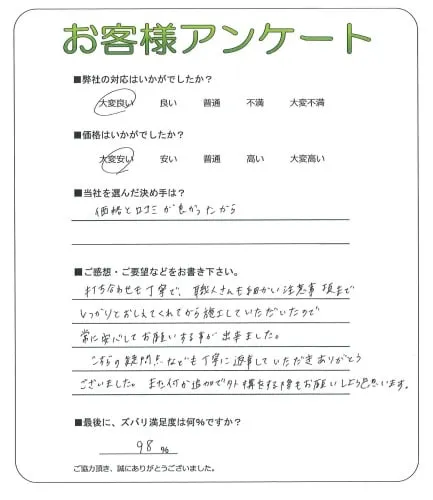 お客様アンケート
■弊社の対応はいかがでしたか？
大変良い 良い 普通 不満 大変不満
■価格はいかがでしたか？
大変安い 安い 普通 高い 大変高い
■当社を選んだ決め手は？
価格と口コミが良かったから
■ご感想・ご要望などをお書き下さい。
打ち合わせも丁寧で、職人さんも細かい注意事項まで
しっかりとおしえてくれてから施工していただいたので
常に安心してお願いする事が出来ました。
こちらの疑問点なども丁寧に返事していただきありがとう
ございました。また何か追加で外構をする際もお願いしようと思います。
■最後に、ズバリ満足度は何%ですか？
98 %
ご協力頂き、誠にありがとうございました。